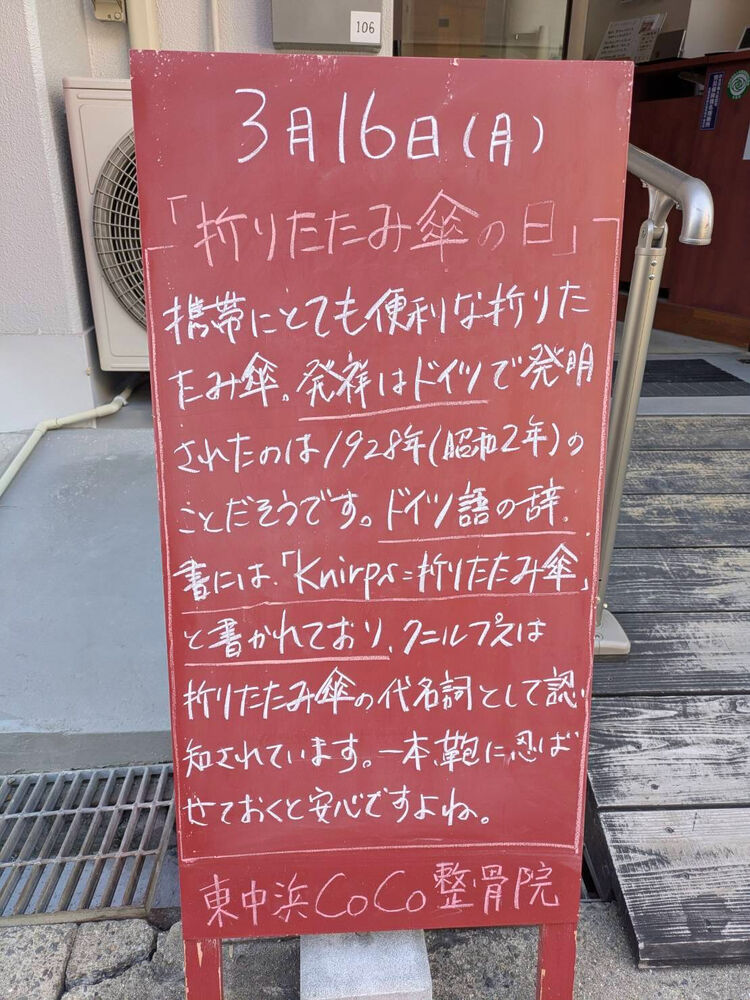 106
3月16日(月)
「折りたたみ傘の日」
携帯にとても便利な折りた
たみ傘。発祥はドイツで発明
されたのは1928年(昭和2年)の
ことだそうです。ドイツ語の辞
書には、「Knirps=折りたたみ傘」
と書かれており、クニルプスは
折りたたみ傘の代名詞として認
知されています。一本鞄に忍ば
せておくと安心ですよね。
東中浜CoCo整骨院